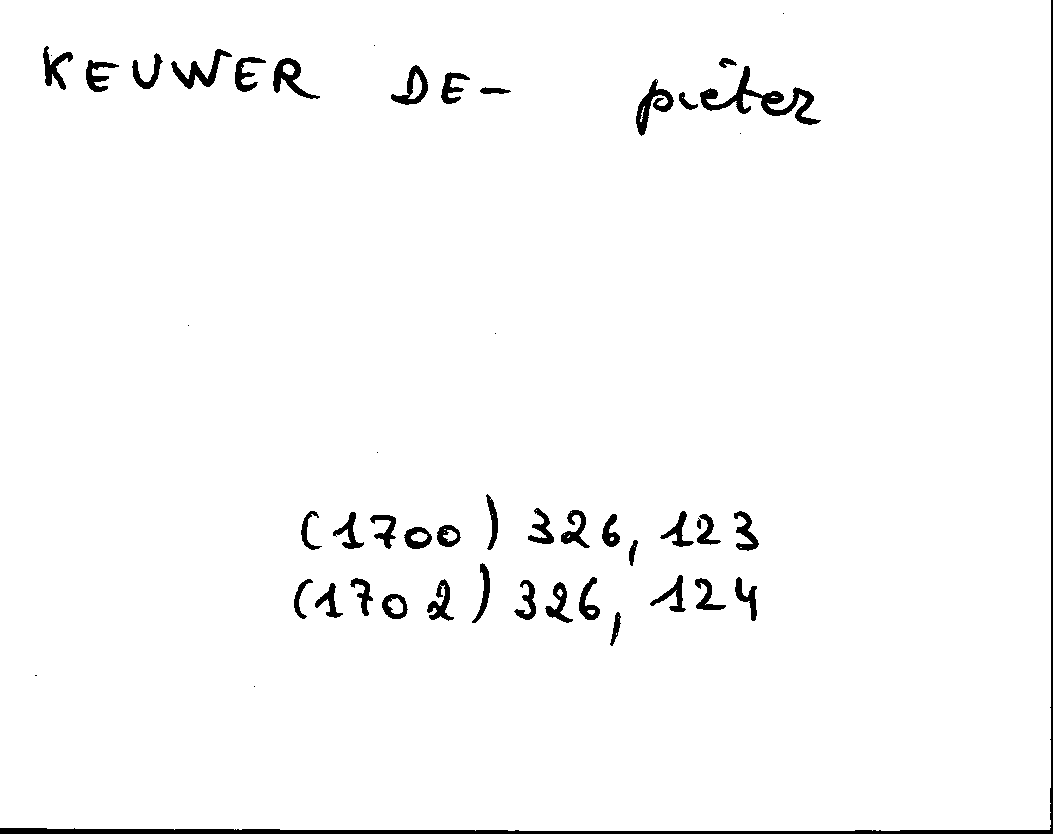 KEUWER DE- pieter
(1700) 326, 123
(1702) 326, 124